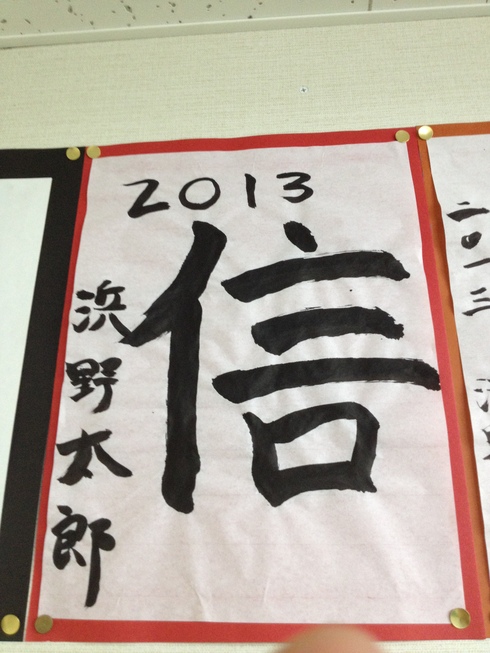 2013
信
浜野太郎
二〇一三